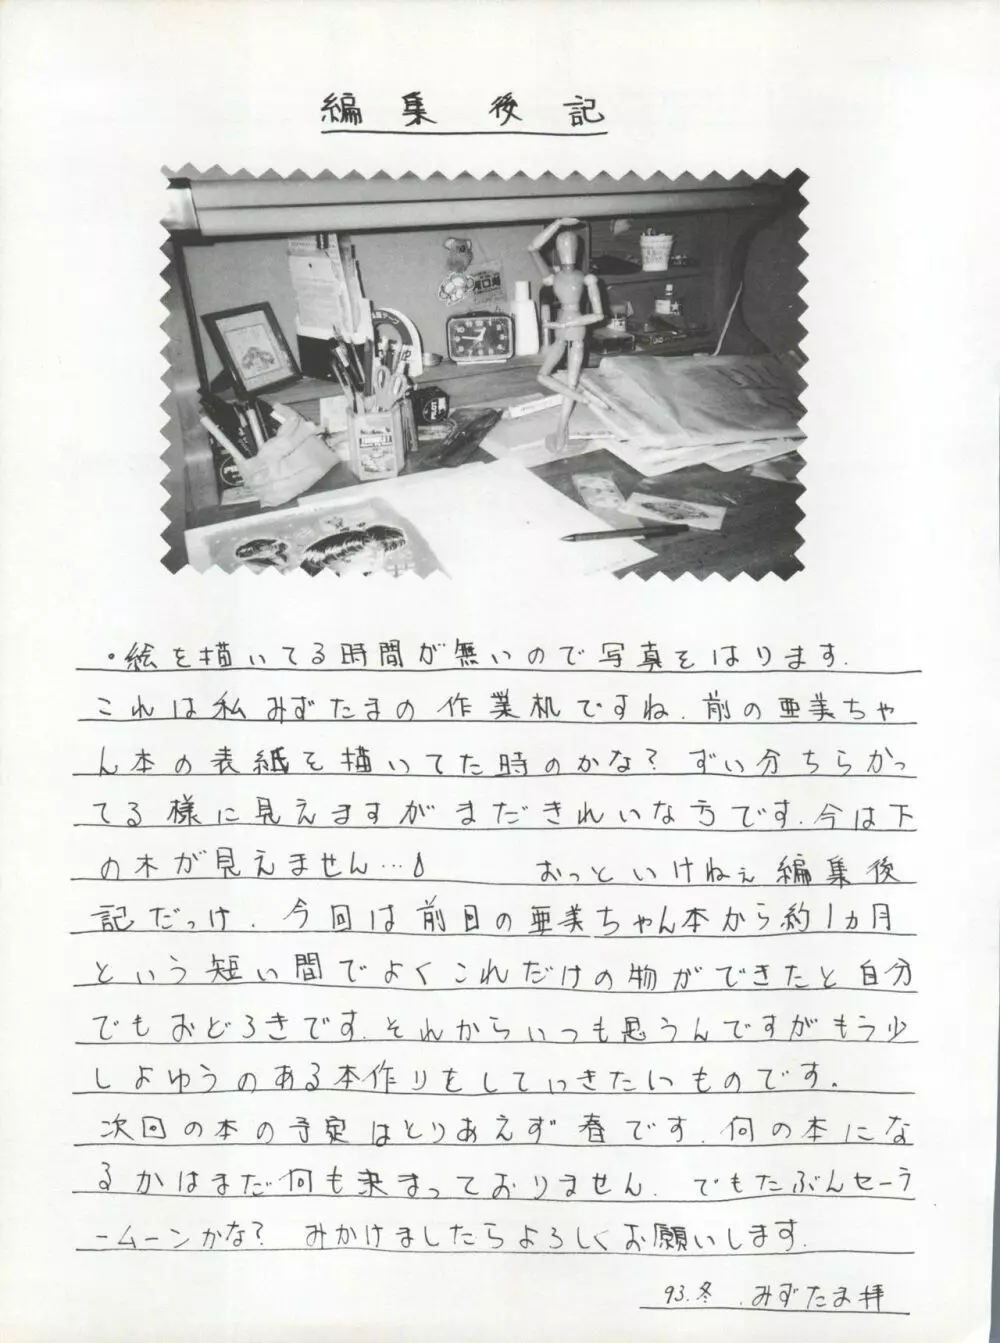 編集後記
・絵を描いてる時間が無いので写真をはります.
これは私みずたまの作業机ですね.前の亜美ちゃ
ん本の表紙を描いてた時のかな?ずい分ちらかっ
てる様に見えますがまだきれいな方です.今は下
の木が見えません… おっといけねぇ編集後
記だっけ.今回は前回の亜美ちゃん本から約1ヵ月
という短い間でよくこれだけの物ができたと自分
でもおどろきです.それからいつも思うんですがもう少
しよゆうのある本作りをしていきたいものです。
次回の本の予定はとりあえず春です.何の本にな
るかはまだ何も決まっておりません.でもたぶんセーラ
ームーンかな?みかけましたらよろしくお願いします.
93.冬.みずたま拝